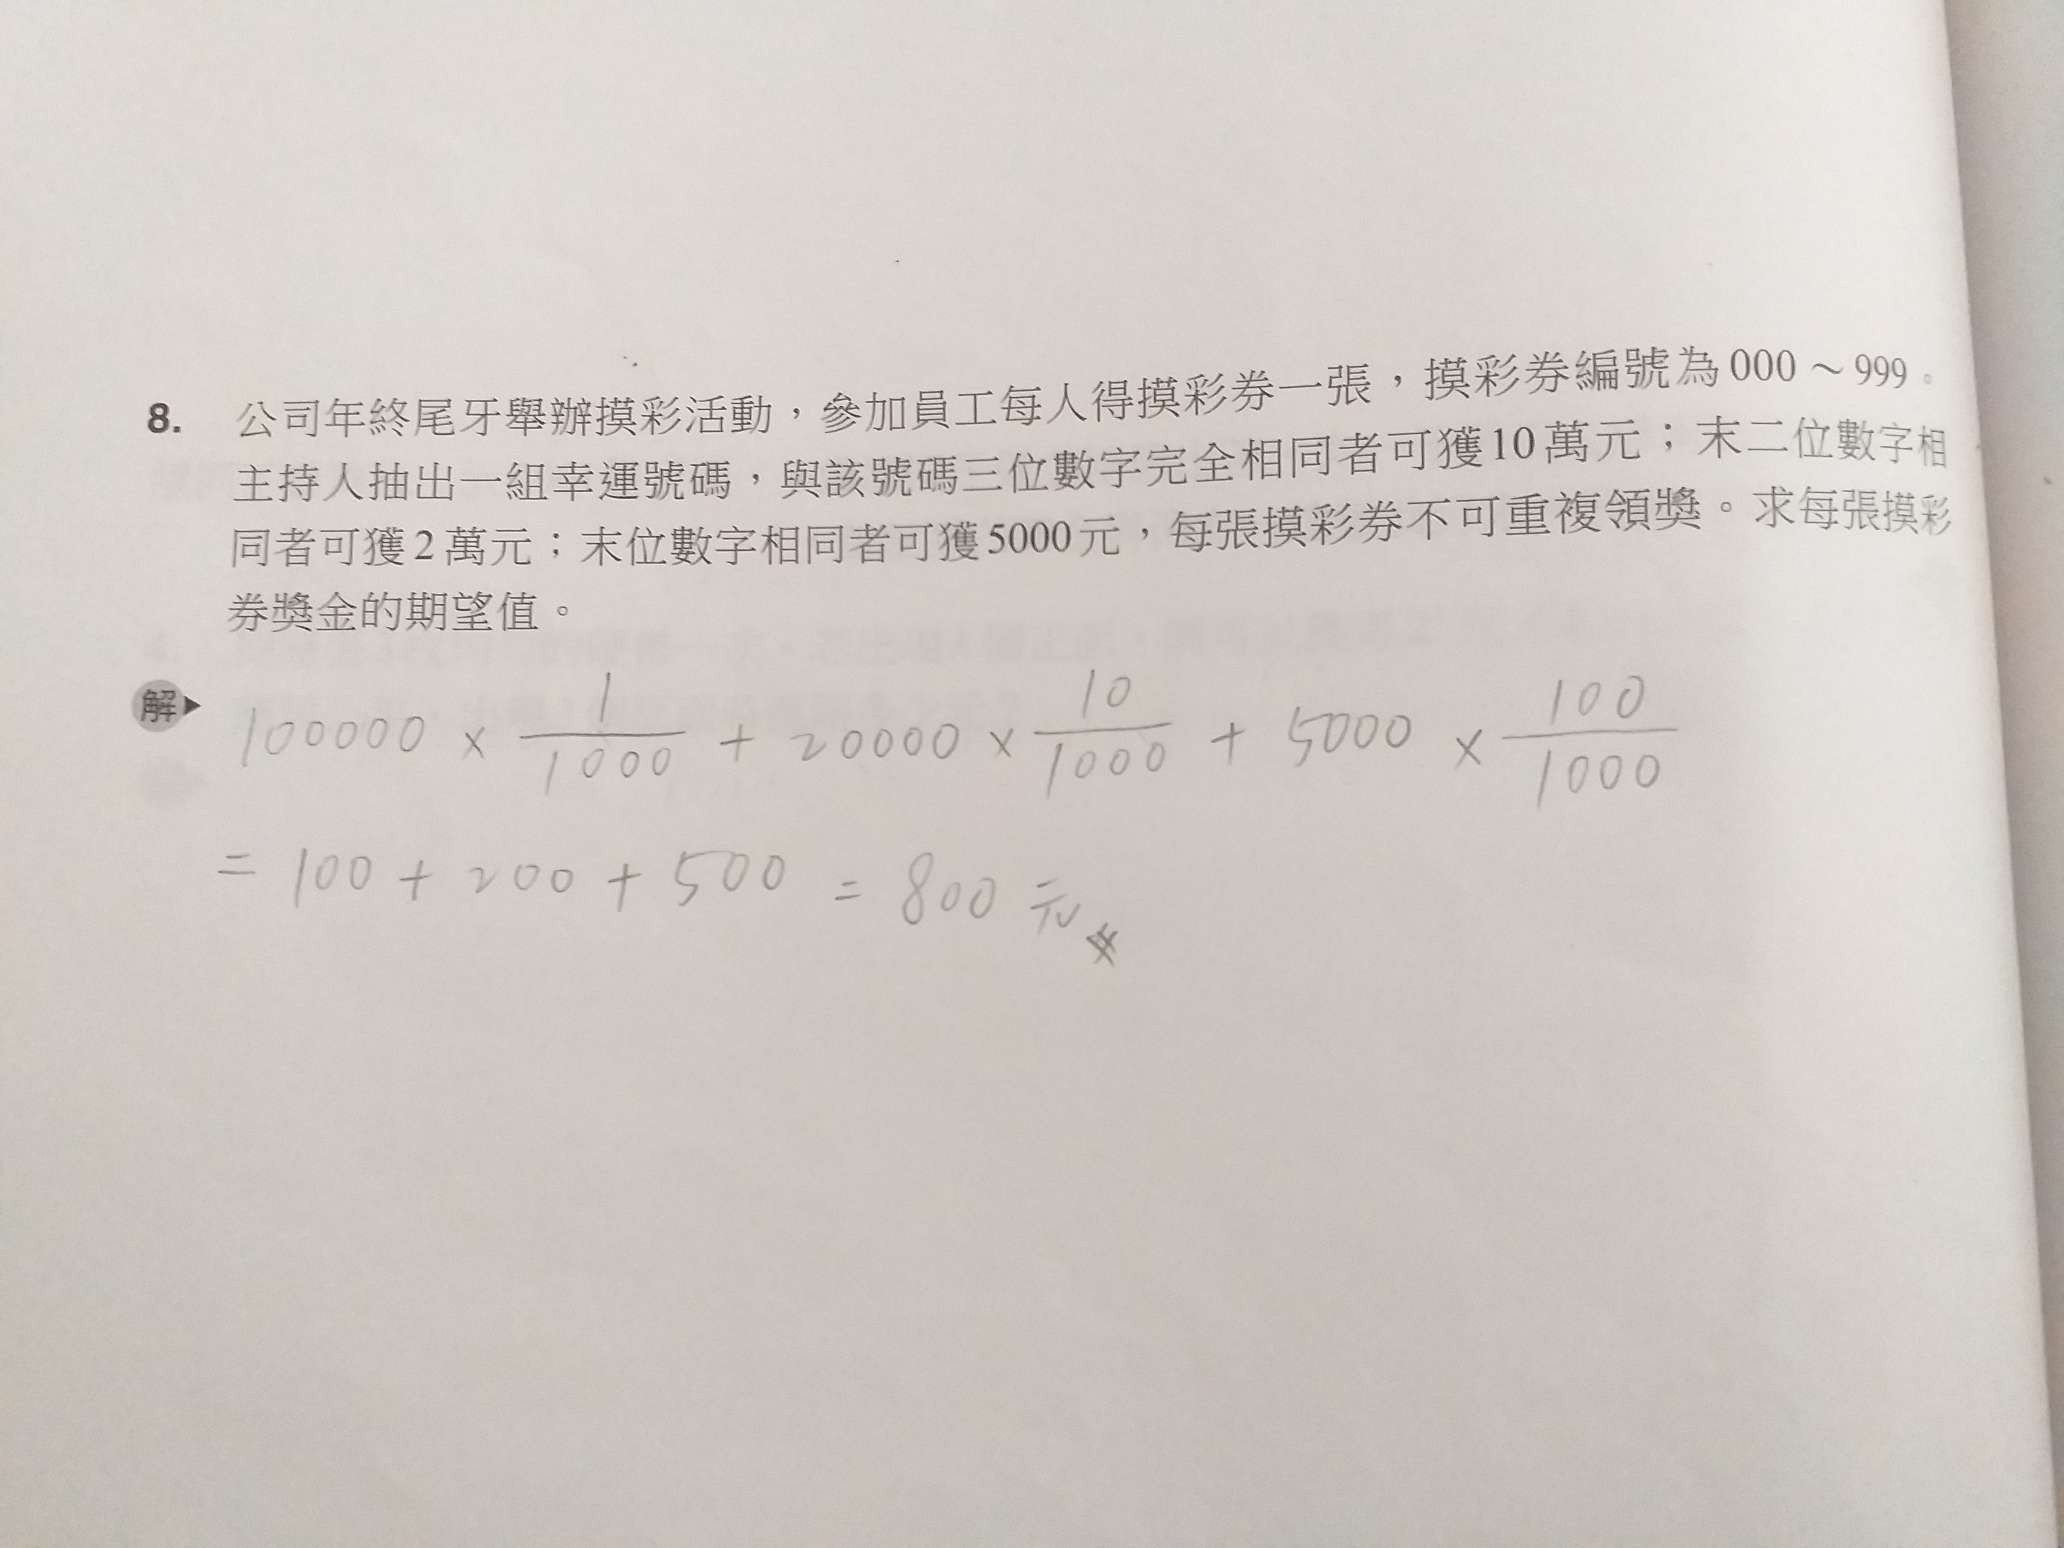 8. 公司年終尾牙舉辦摸彩活動，參加員工每人得摸彩券一張，摸彩券編號為000～999。
主持人抽出一組幸運號碼，與該號碼三位數字完全相同者可獲10萬元；末二位數字相
同者可獲2萬元；末位數字相同者可獲5000元，每張摸彩券不可重複領獎。求每張摸彩
券獎金的期望值。
解 100000 × 1/1000 + 20000 × 10/1000 + 5000 × 100/1000
= 100 + 200 + 500 = 800 元 #